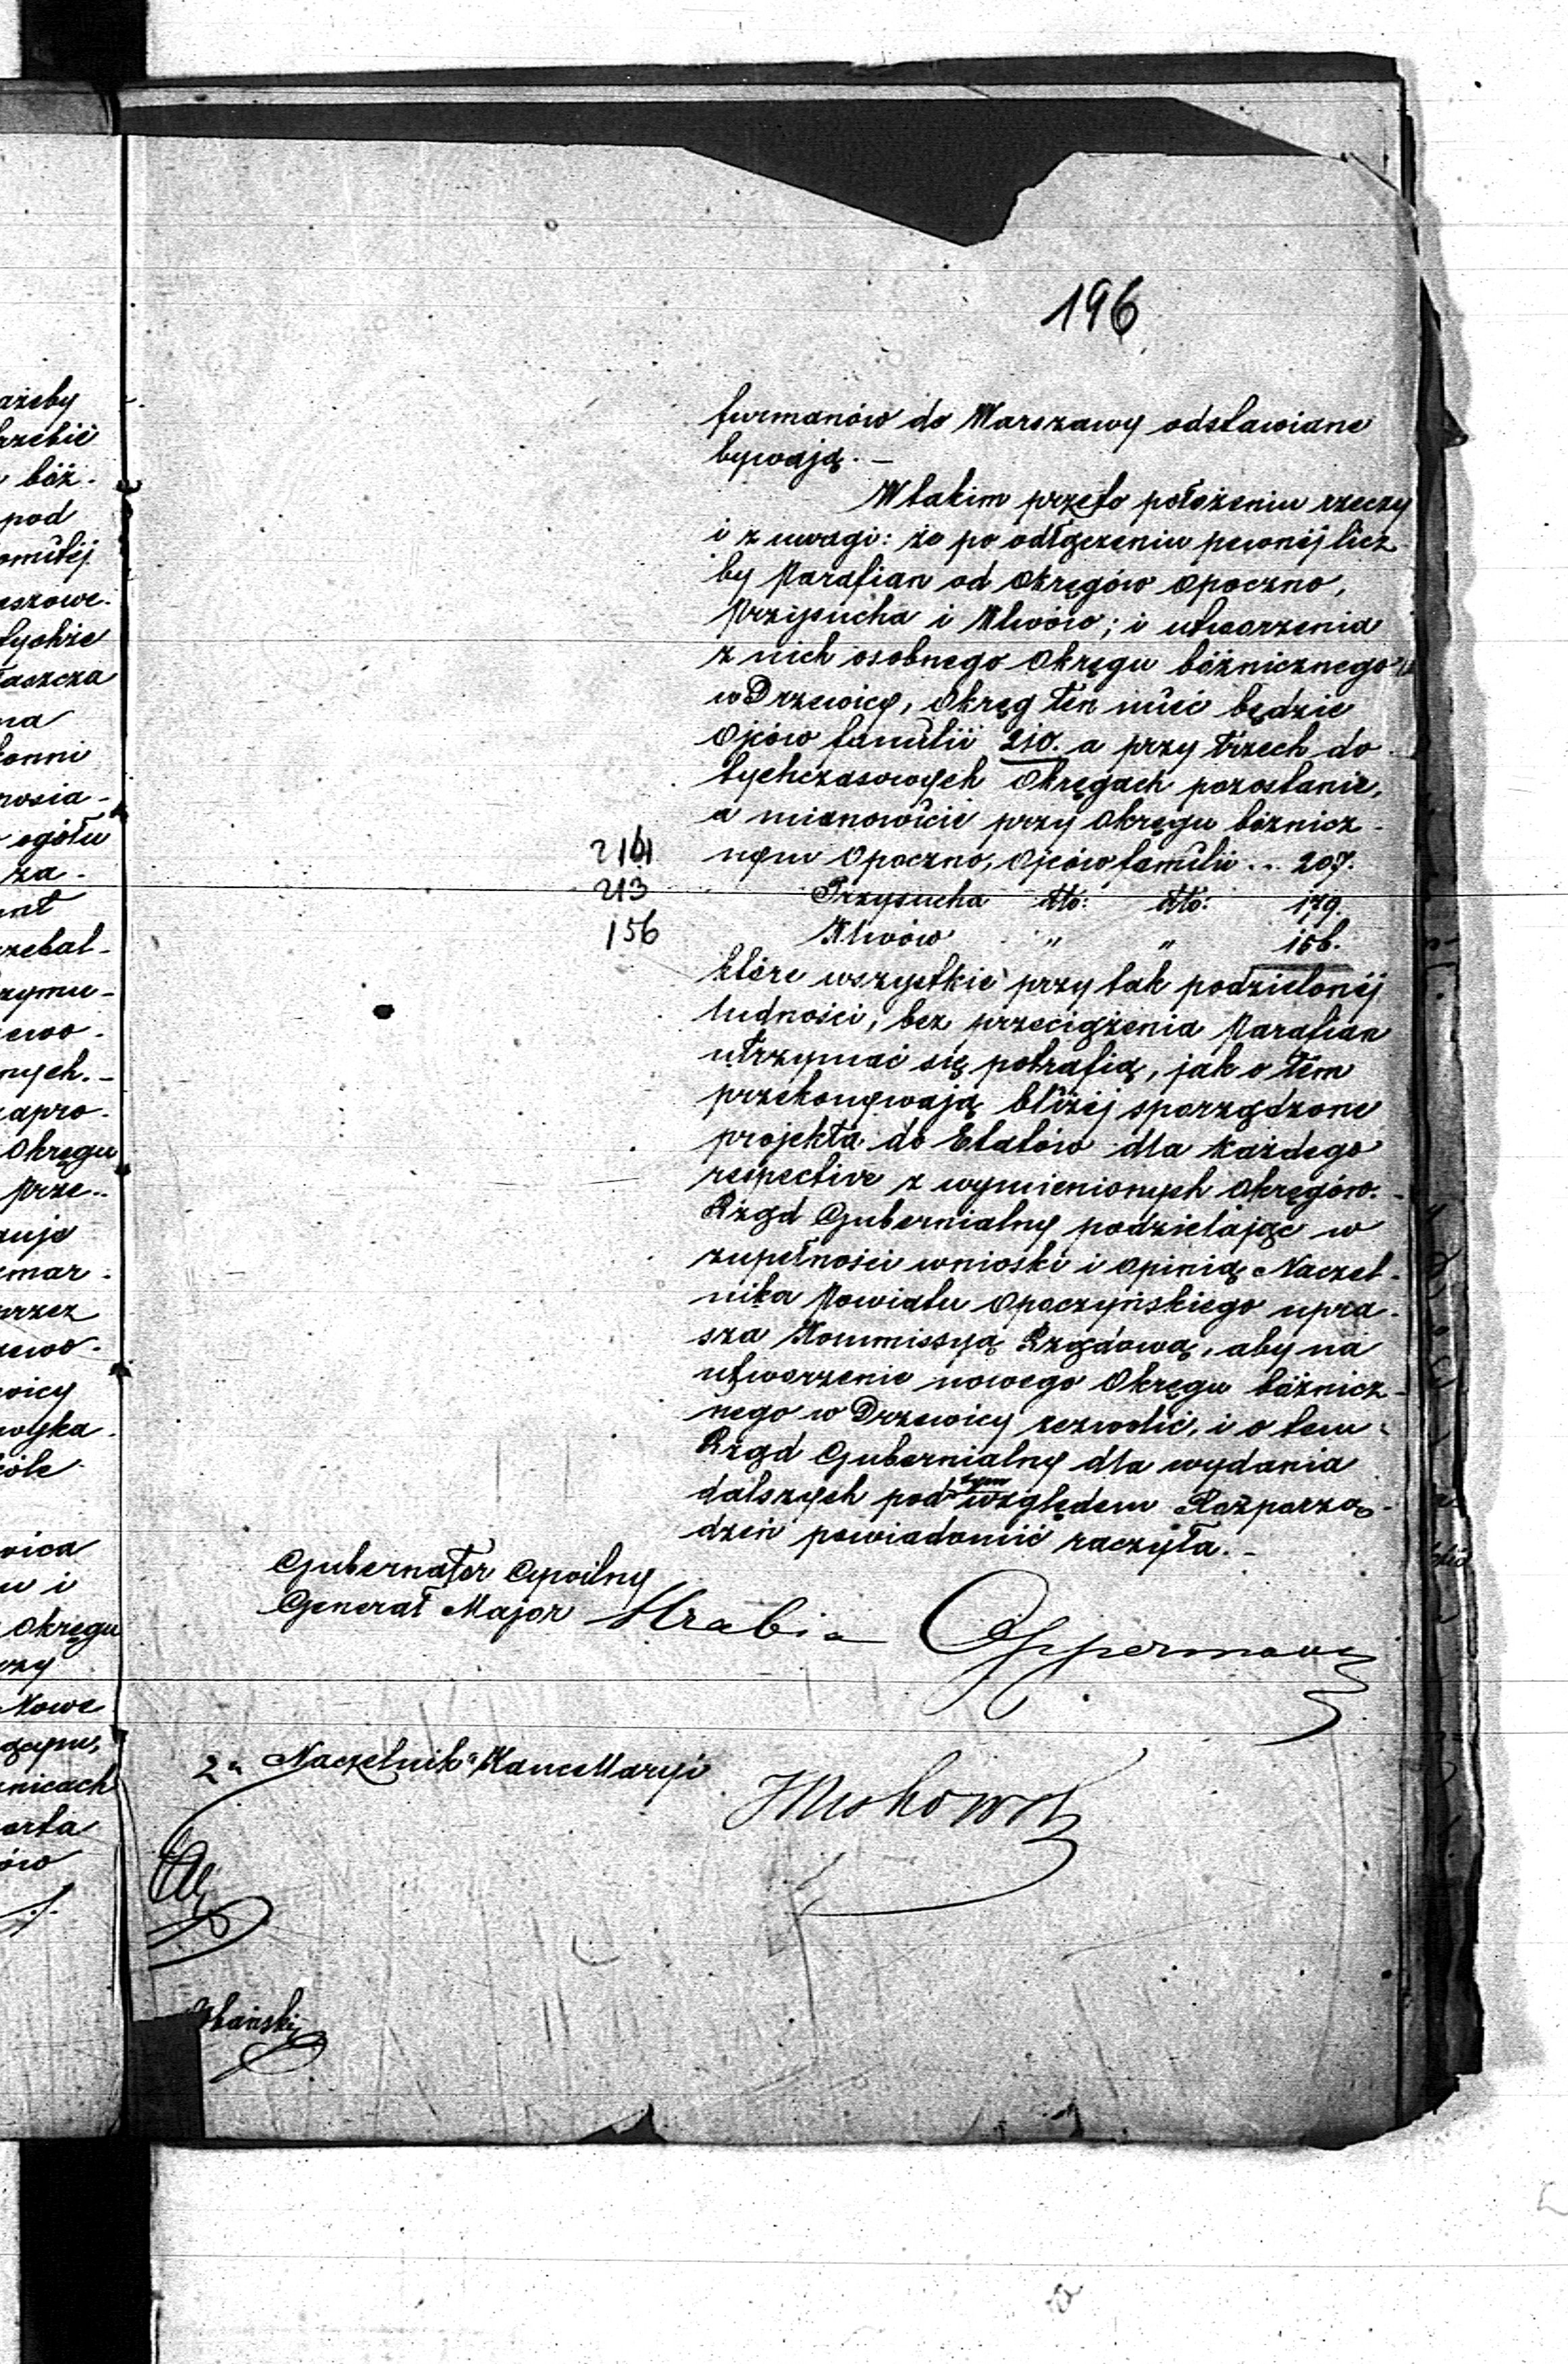 196
furmanów do Warszawy odstawiane
bywają. –
W takim przeto położeniu rzeczy
i z uwagi: że po odłączeniu pewnéj licz
by Parafian od Okręgów Opoczno,
Przysucha i Klwów; i utworzenia
z nich osobnego Okręgu bóżnicznego
w Drzewicy, Okręg ten mieć będzie
Ojców familii 210. a przy trzech do
tychczasowych Okręgach pozostanie,
a mianowicie przy Okręgu bóżnicz-
nym Opoczno, Ojców familii ... 207.
213 Przysucha tto: tto: 179.
156 Klwów „ „ 156.
które wszystkie przy tak podzielonéj
ludności, bez przeciążenia Parafian
utrzymać się potrafią, jak o tém
przekonywają bliżéj sporządzone
projekta do Etatów dla każdego
respective z wymienionych Okręgów. –
Rząd Gubernialny podzielając w
zupełności wnioski i opinią Naczel-
nika Powiatu Opoczyńskiego upra-
sza Kommissyą Rządową, aby na
utworzenie nowego Okręgu bóżnicz-
nego w Drzewicy zezwolić, i o tem
Rząd Gubernialny dla wydania
dalszych pod tym względem Rozporzą-
dzeń powiadomić raczyła. –
Gubernator Cywilny
Generał Major Hrabia Opperman
Naczelnik Kancellaryi
ażeby
bóż.
pod
tychże
na
ogółu
za-
zymu-
ewo-
nych. –
zapro-
Okręgu
prze-
mar-
przez
ewo-
wicy
u i
Okręgu
Nowe